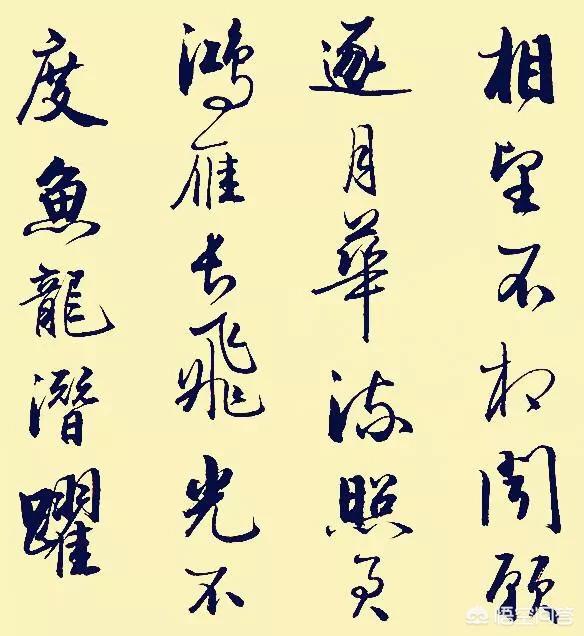 相望不相聞願
逐月華流照君
鴻雁長飛光不
度魚龍潛躍
悟空问答